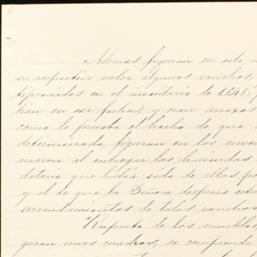 Ademas figuran en este
su respectivo valor algunos ranchos,
apreciados en el inventario de 1848,
bien en esa fecha, y eran
como lo prueba el hecho de que
determinado, figuran en los
maron al entregar las
ditaria que habia sido de
y el de que la Señora despues
arrendamientos de tales ranchos
Respecto de los muebles,
guran unos cuadros, se comprende